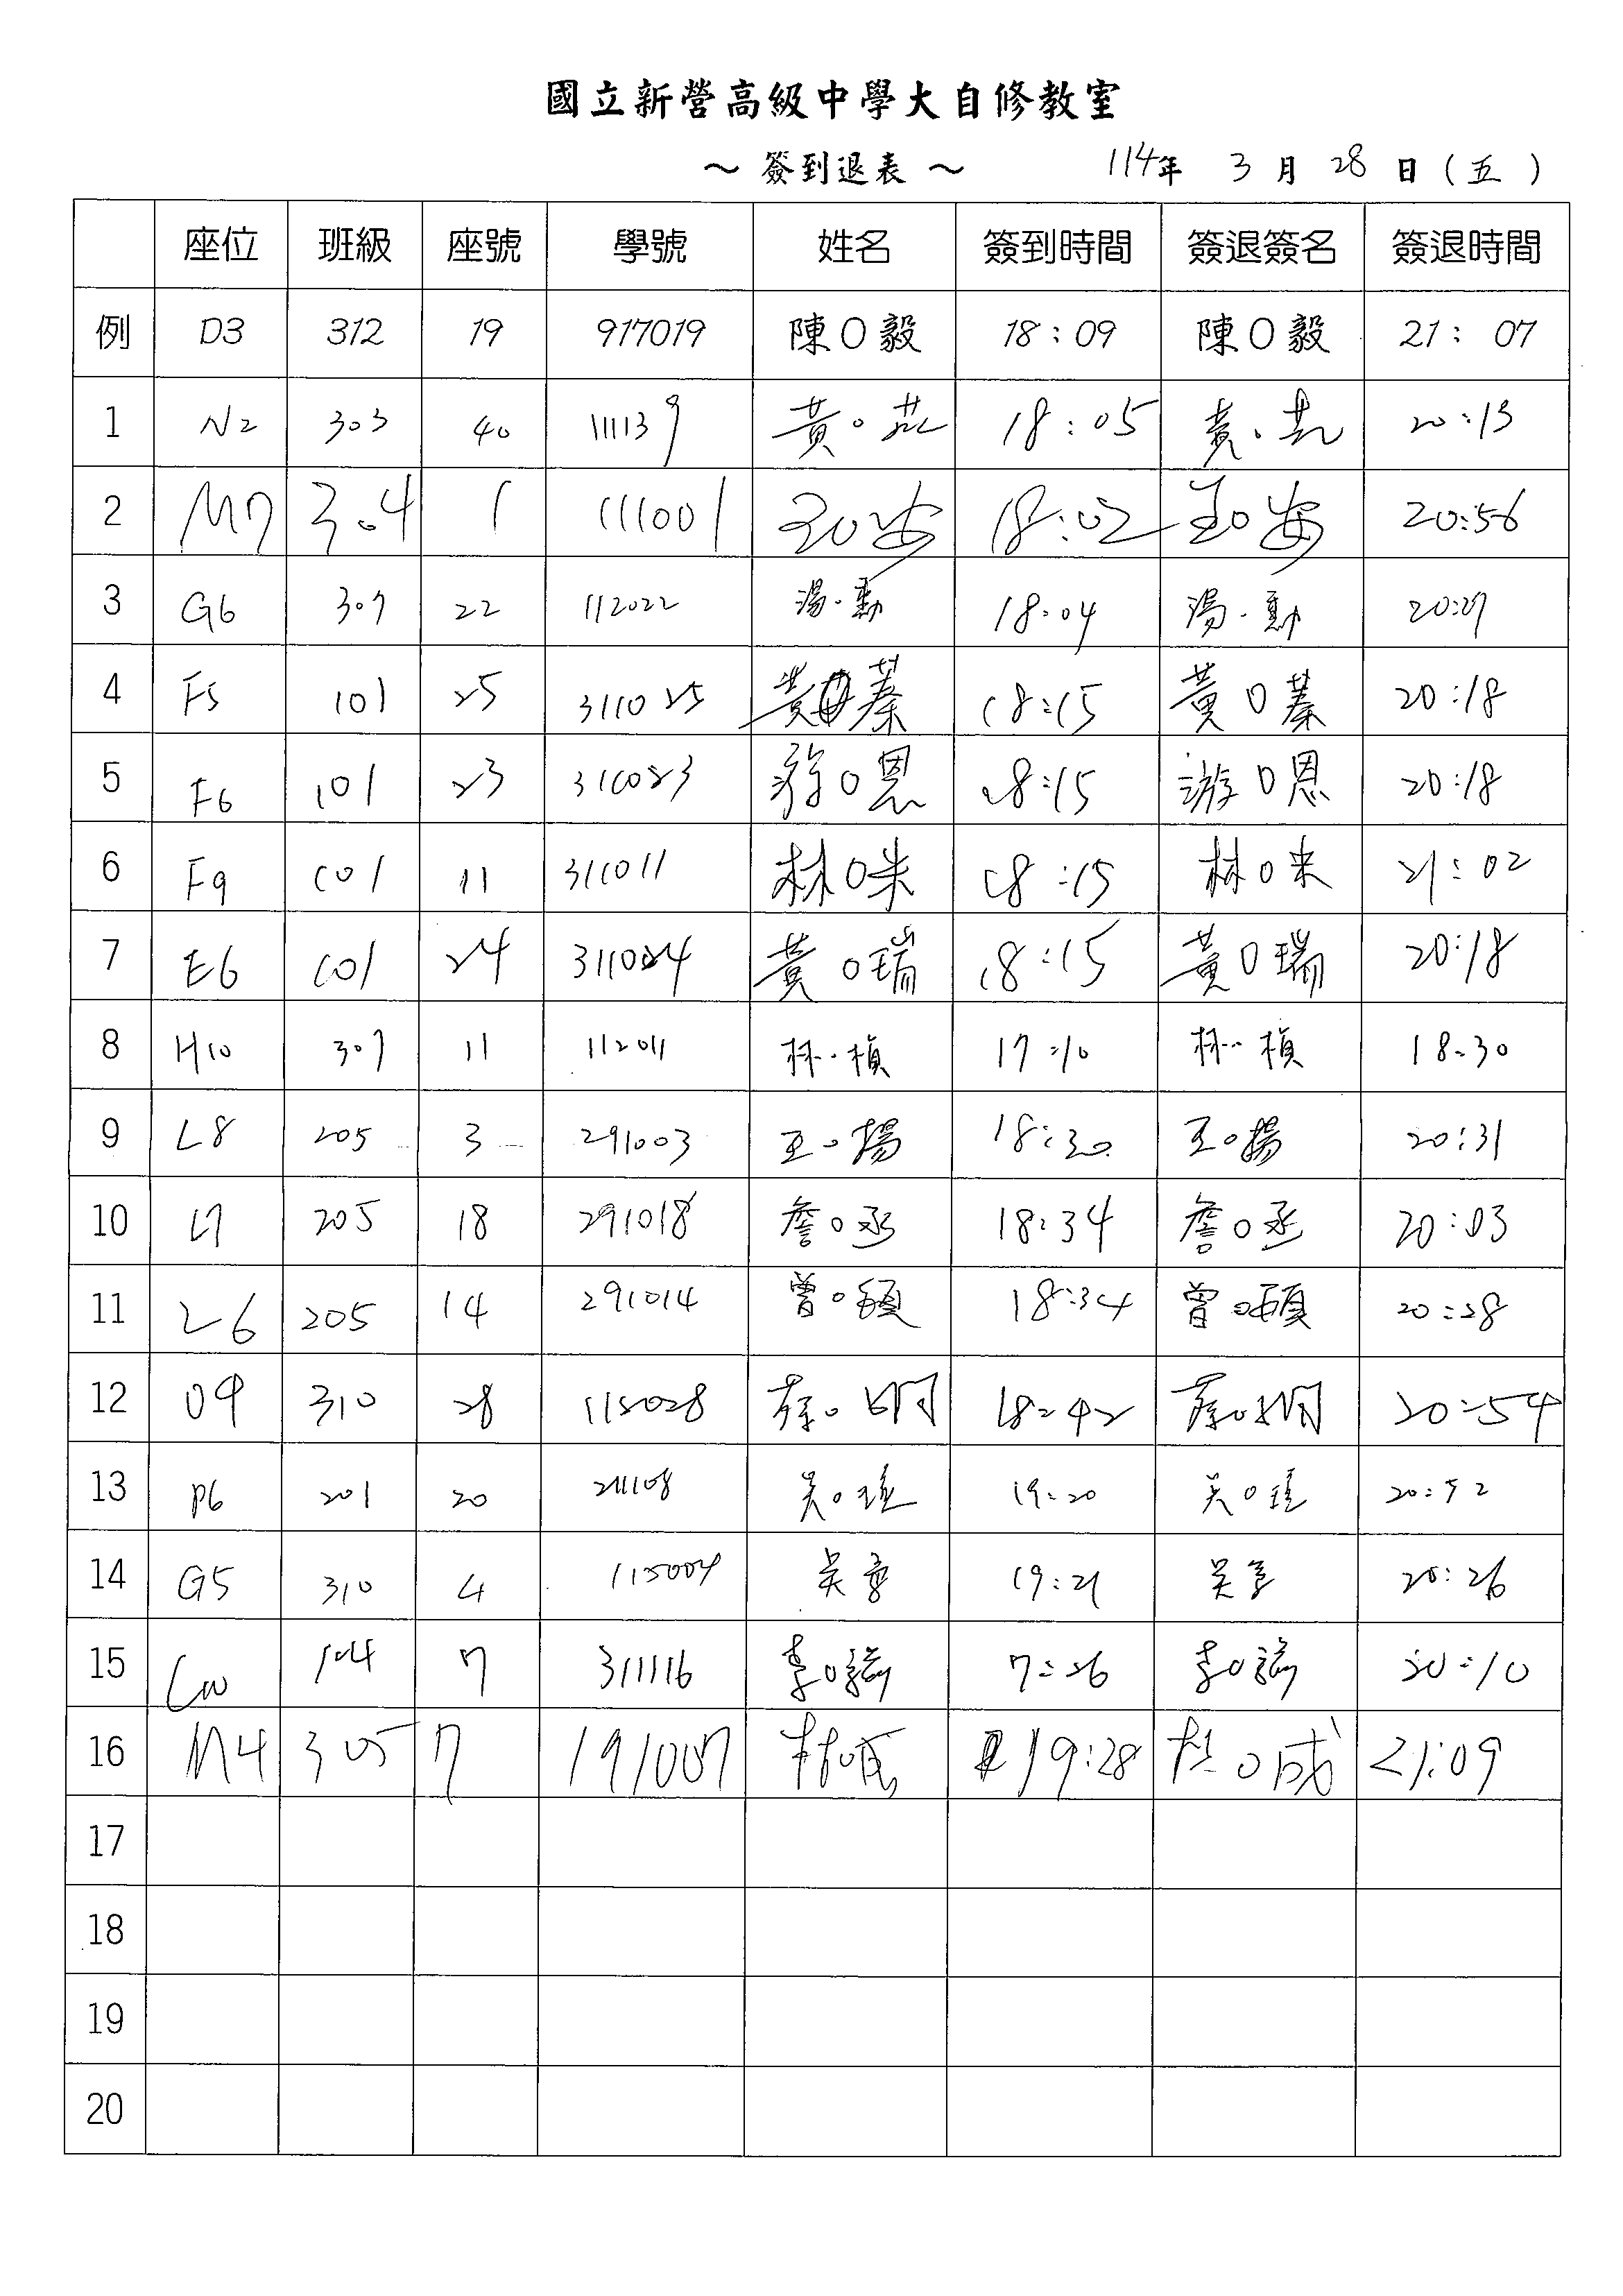 國立新營高級中學大自修教室
～ 簽到退表 ～ 114年 3月 28日(五)
座位 班級 座號 學號 姓名 簽到時間 簽退簽名 簽退時間
例 D3 312 19 917019 陳O毅 18:09 陳O毅 21:07
1 N2 303 40 111139 黃 18:05 黃 20:13
2 M7 304 1 111001 王O安 18:02 王O安 20:56
3 G6 307 22 112022 湯.勳 18:04 湯.勳 20:27
4 F5 101 25 311025 黃O蓁 18:15 黃O蓁 20:18
5 F6 101 23 311023 游O恩 18:15 游O恩 20:18
6 F9 101 11 311011 林O 18:15 林O 21:02
7 E6 101 24 311024 黃O瑞 18:15 黃O瑞 20:18
8 H10 307 11 112011 林..楨 17:10 林..楨 18:30
9 L8 205 3 291003 王O揚 18:30 王O揚 20:31
10 L7 205 18 291018 詹O丞 18:34 詹O丞 20:03
11 L6 205 14 291014 曾O碩 18:34 曾O碩 20:28
12 O9 310 28 115028 蔡O 18:42 蔡O 20:54
13 P6 201 20 211108 吳O 19:20 吳O 20:52
14 G5 310 4 115004 吳 19:21 吳 20:26
15 104 7 311116 李O 7:26 李O 20:10
16 M4 305 7 191007 林O成 19:28 林O成 21:09
17
18
19
20